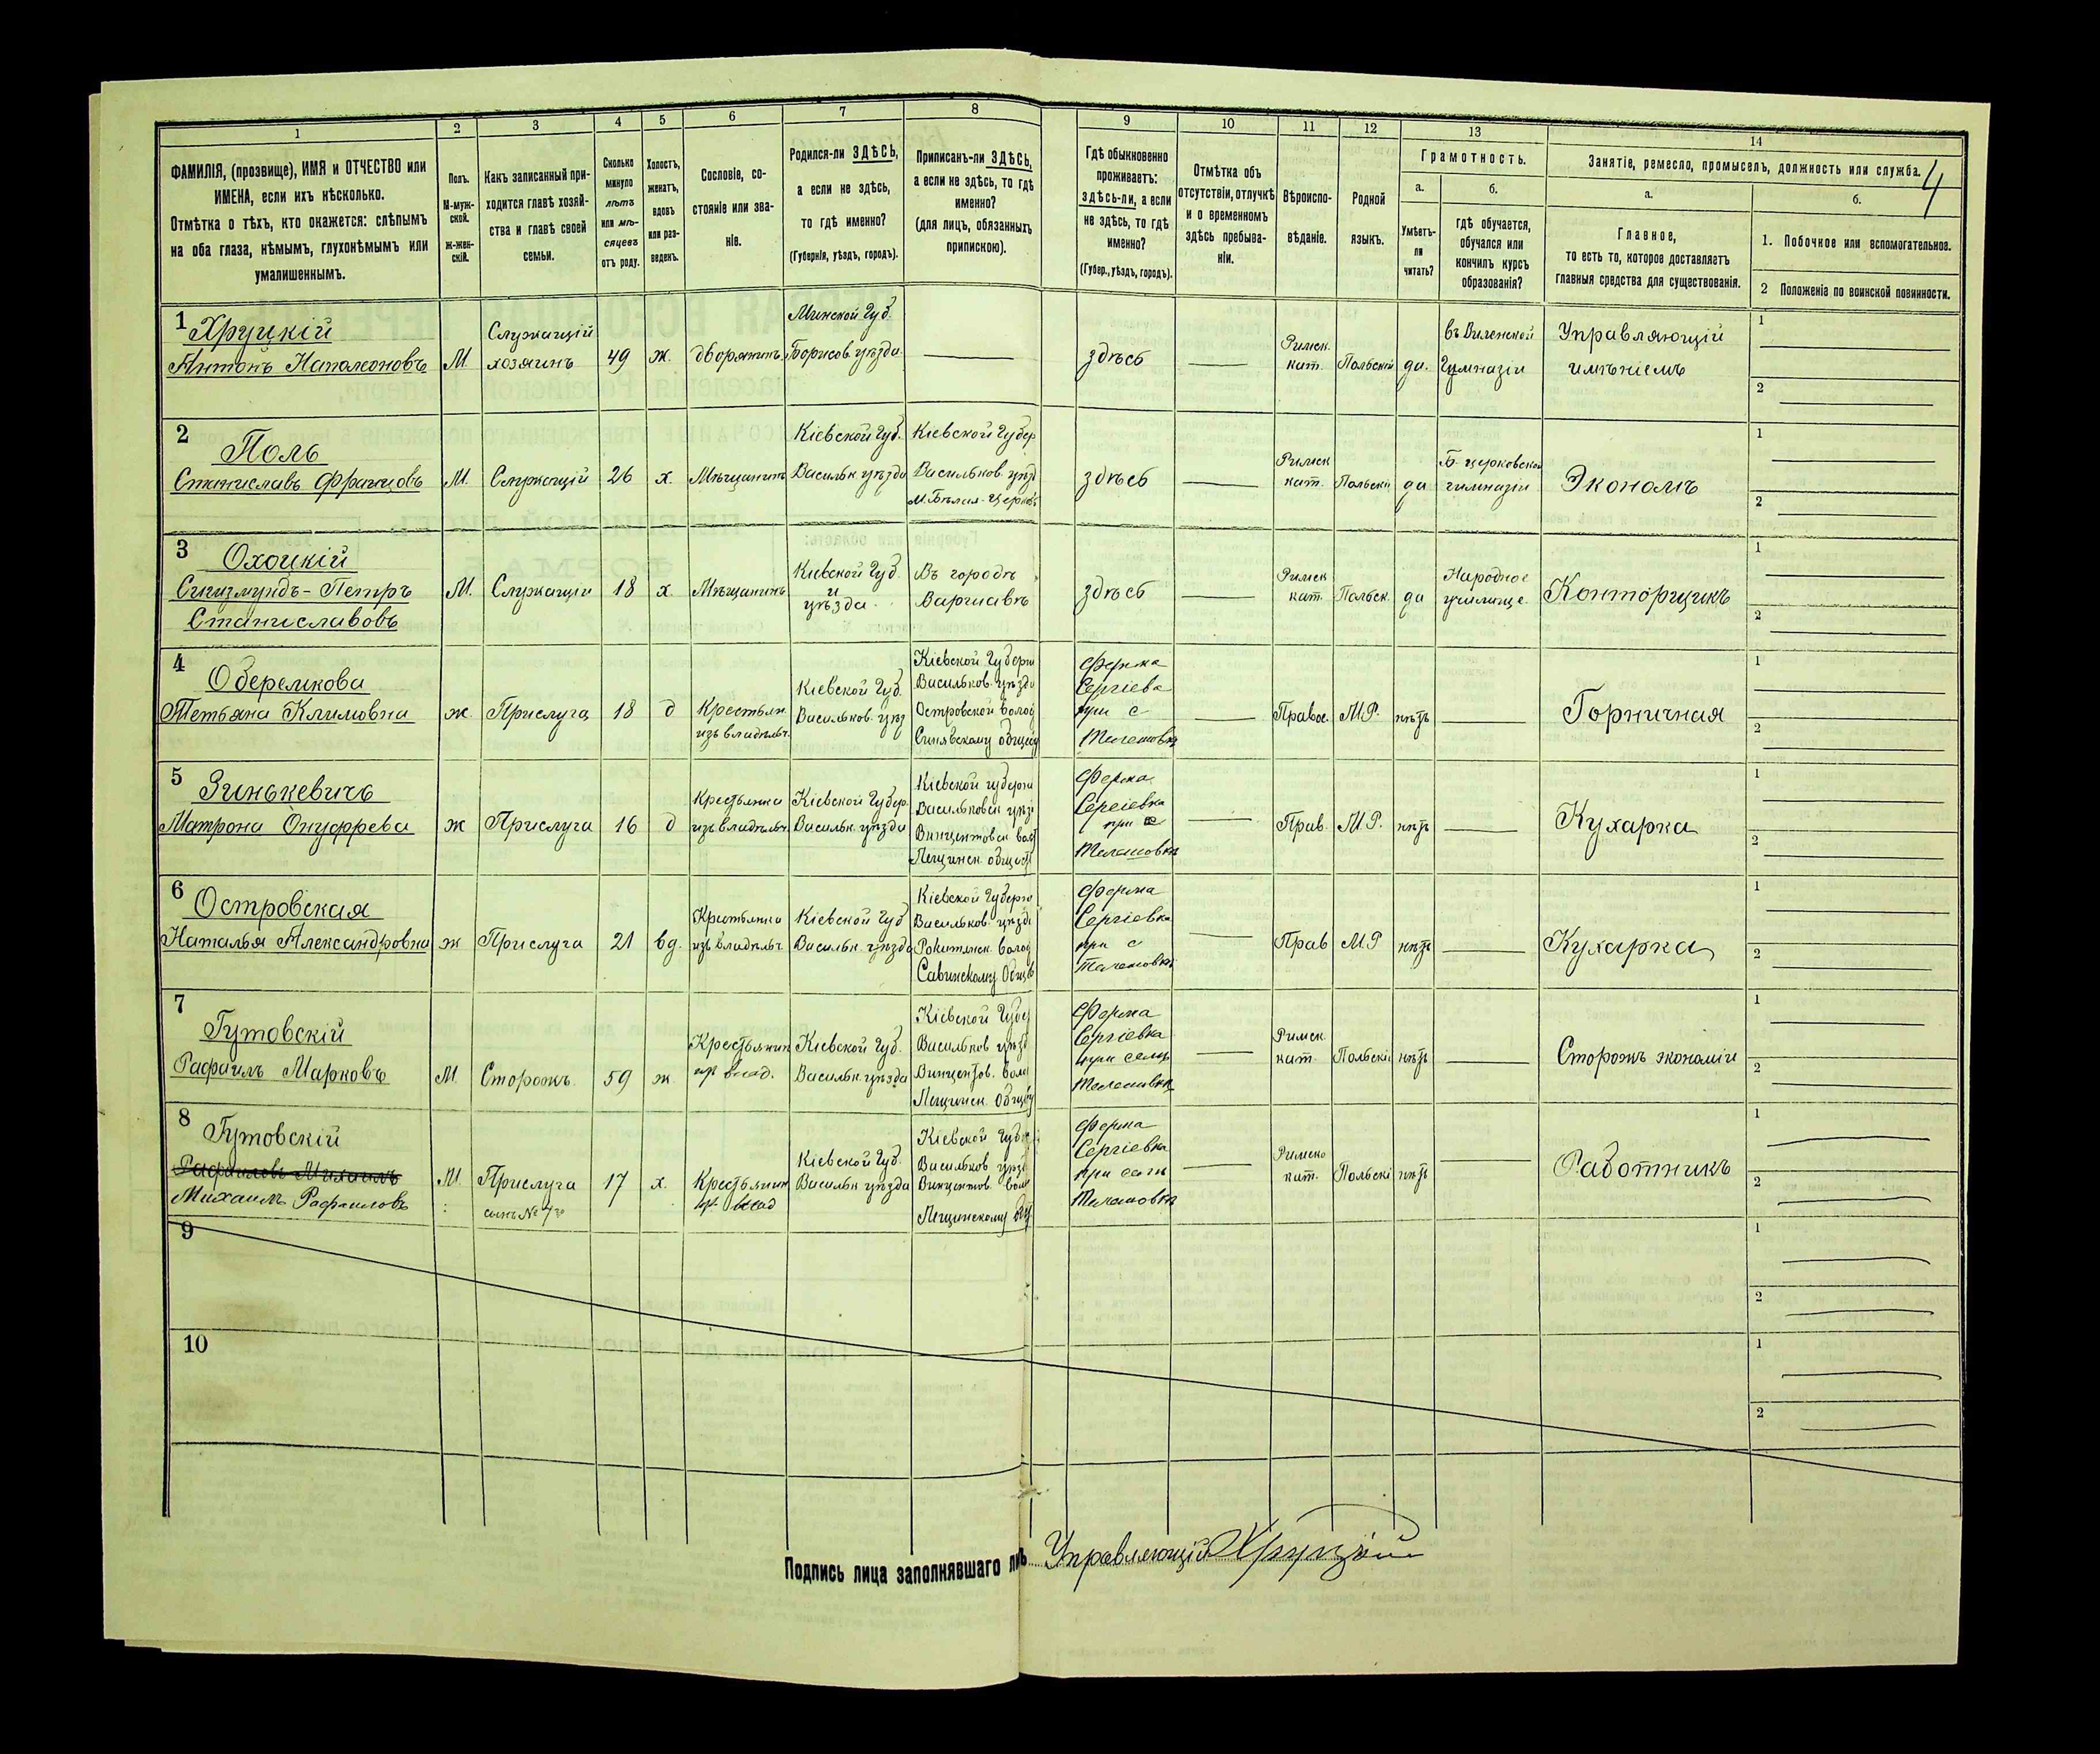 1 2 3 4 5 6 7 8 9 10 11 12 13 14
ФАМИЛІЯ, (прозвище), ИМЯ и ОТЧЕСТВО или
ИМЕНА, если ихъ нѣсколько.
Отмѣтка о тѣхъ, кто окажется: слѣпымъ
на оба глаза, нѣмымъ, глухонѣмымъ или
умалишеннымъ.
Полъ.
М-муж-
ской.
ж-жен-
скій.
Какъ записанный при-
ходится главѣ хозяй-
ства и главѣ своей
семьи.
Сколько
минуло
лѣтъ
или мѣ-
сяцевъ
отъ роду.
Холостъ,
женатъ,
вдовъ
или раз-
веденъ.
Сословіе, со-
стояніе или зва-
ніе.
Родился-ли ЗДѢСЬ,
а если не здѣсь,
то гдѣ именно?
(Губернія, уѣздъ, городъ).
Приписанъ-ли ЗДѢСЬ,
а если не здѣсь, то гдѣ
именно?
(для лицъ, обязанныхъ
припискою).
Гдѣ обыкновенно
проживаетъ:
здѣсь-ли, а если
не здѣсь, то гдѣ
именно?
(Губер., уѣздъ, городъ).
Отмѣтка объ
отсутствіи, отлучкѣ
и о временномъ
здѣсь пребыва-
ніи.
Вѣроиспо-
вѣданіе.
Родной
языкъ.
Грамотность.
а.
Умѣетъ-
ли
читать?
б.
гдѣ обучается,
обучался или
кончилъ курсъ
образованія?
Занятіе, ремесло, промыселъ, должность или служба.
4
а.
Главное,
то есть то, которое доставляетъ
главныя средства для существованія.
б.
1. Побочное или вспомогательное.
2 Положеніе по воинской повинности.
1 Хруцкій
Антонъ Наполеоновъ
М
Служащій
хозяинъ
49
ж.
дворянинъ
Минской Губ.
Борисов. уѣзда
здѣсь
Римск.
кат.
Польскій
да.
въ Виленской
Гимназіи
Управляющій
имѣніемъ
1
2
2
Поль
Станиславъ Францовъ
М.
Служащій
26
х.
Мѣщанинъ
Кіевской Губ.
Васильк. уѣзда
Кіевской Губер
Васильков. уѣзд
м. Бѣлая-Церковь
здѣсь
Римск
кат.
Польскій
да
Б. церковской
гимназіи
Экономъ
1
2
3
Охоцкій
Сигизмундъ-Петръ
Станиславовъ
М.
Служащій
18
х.
Мѣщанинъ
Кіевской Губ.
и
уѣзда
Въ городѣ
Варшавѣ
здѣсь
Римск
кат.
Польск.
да
Народное
училище
Конторщикъ
1
2
4
Оберемкова
Тетьяна Климовна
ж.
Прислуга
18
д
Крестьян
изъ владѣльч.
Кіевской Губ.
Васильков. уѣз
Кіевской Губерн
Васильков. уѣзда
Островской волос
Синявскому общес
Ферма
Сергіева
при с
Телешовка
Правос.
М.Р.
нѣтъ
Горничная
1
2
5
Зинькевичъ
Матрона Онуфрева
ж
Прислуга
16
д
Крестьянка
изъ владѣльч.
Кіевской Губер.
Васильк. уѣзда
Кіевской губерн
Васильковск уѣзд
Винцентовск вол
Пещинск. общест
Ферма
Сергіевка
при с
Телешовка
Прав.
М.Р.
нѣтъ
Кухарка
1
2
6
Островская
Наталья Александровна
ж
Прислуга
21
вд.
Крестьянка
изъ владѣльч.
Кіевской Губ
Васильк. уѣзда
Кіевской Губерн
Васильков. уѣзда
Рокитянск. волос
Савинскому Общ
Ферма
Сергіевка
при с
Телешовка
Прав
М.Р
нѣтъ
Кухарка
1
2
7
Гутовскій
Рафаилъ Марковъ
М
Сторожъ.
59
ж.
Крестьянин
пр влад.
Кіевской Губ.
Васильк. уѣзда
Кіевской Губ
Васильков уѣзд
Винцентов. воло
Пещинск. Общес
Ферма
Сергіевка
при селѣ
Телешовка
Римск.
кат.
Польскій
нѣтъ
Сторожъ экономіи
1
2
8
Гутовскій
Рафаиловъ Михаилъ
Михаилъ Рафаиловъ
М.
Прислуга
сынъ № 7го
17
х.
Крестьянин
пр. влад
Кіевской Губ.
Васильк уѣзда
Кіевской Губ
Васильков уѣзд
Винцентов. вол
Пещинскому общ
Ферма
Сергіевка
при селѣ
Телешовка
Римско
кат.
Польскій
нѣтъ
Работникъ
1
2
9
1
2
10
1
2
Подпись лица заполнявшаго
Управляющій Хруцкій